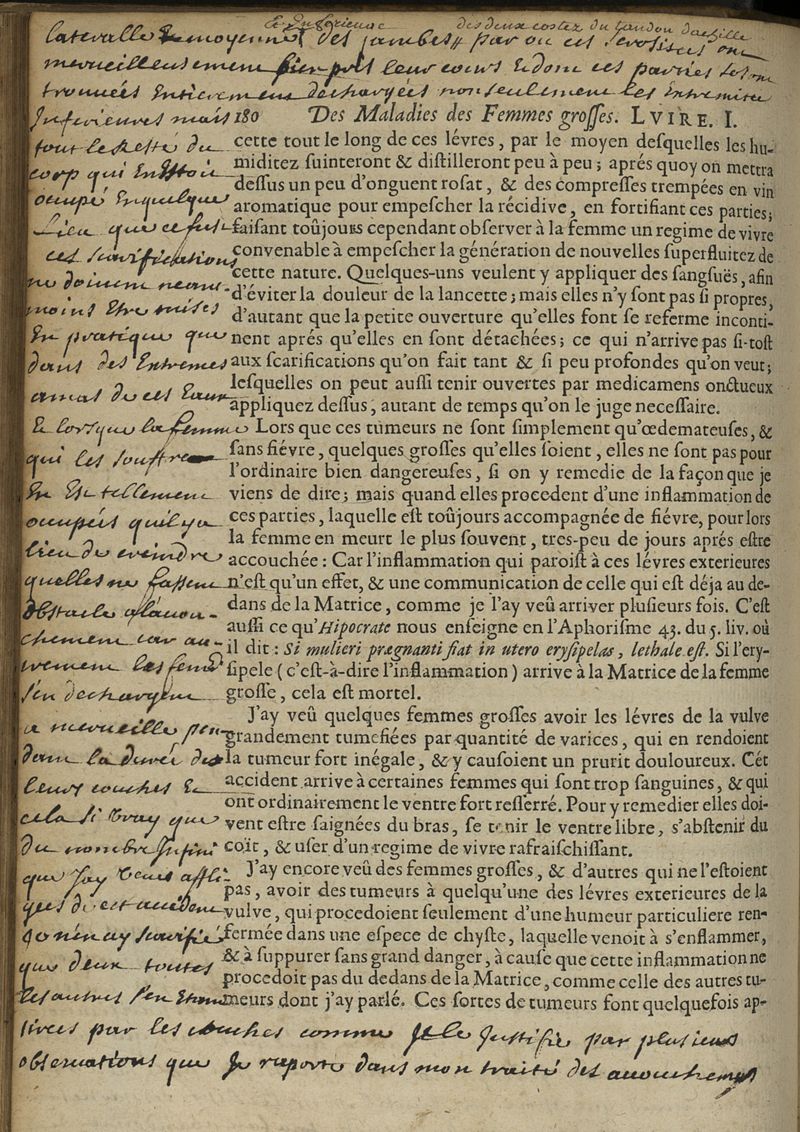 et Inferieure des deux costez du tandon dachille
lateralle & moyenne des jambes par ou ces serosites ont
merueilleusement bien pris leur cours & dont ces parties se sont
trouuées Entierement dechargées non seulement les Extremites
Inferieures mais
180 Des Maladies des Femmes groſſes. LVIRE. I.
tout le reste du
corp qui Enestoit
occupé En quelque
Lieu que ce fust
ces scarifications
ne doiuent neant-
moins Etre mises
En pratique que
dans des Extremes
amas de ces Eaux
& lorsque la femme
qui les souffre
En Est tellement
occupés quil y a
lieu de creindre
quelles ne fassent
obstacle a laccou-
chement car au-
trement les femes
s'en dechargent
a merueille pen-
dant la durée de
leurs couches &
cela si vray que
du nombre Infini
que Jay veues affli-
gées de cet accident
Je n'en ay scarifié
que deux toutes
les autres s'en Etant
cette tout le long de ces lévres, par le moyen deſquelles les hu-
miditez ſuinteront & diſtilleront peu à peu; aprés quoy on mettra
deſſus un peu d'onguent roſat, & des compreſſes trempées en vin
aromatique pour empeſcher la récidive, en fortifiant ces parties;
faiſant toûjours cependant obſerver à la femme un regime de vivre
convenable à empeſcher la génération de nouvelles ſuperfluitez de
cette nature. Quelques-uns veulent y appliquer des ſangſuës, afin
d'éviter la douleur de la lancette; mais elles n'y ſont pas ſi propres,
d'autant que la petite ouverture qu'elles font ſe referme inconti-
nent aprés qu'elles en ſont détachées; ce qui n'arrive pas ſi-toſt
aux ſcarifications qu'on fait tant & ſi peu profondes qu'on veut;
leſquelles on peut auſſi tenir ouvertes par medicamens onctueux
appliquez deſſus, autant de temps qu'on le juge neceſſaire.
Lors que ces tumeurs ne ſont ſimplement qu'œdemateuſes, &
ſans fiévre, quelques groſſes qu'elles ſoient, elles ne ſont pas pour
l'ordinaire bien dangereuſes, ſi on y remedie de la façon que je
viens de dire; mais quand elles procedent d'une inflammation de
ces parties, laquelle eſt toûjours accompagnée de fiévre, pour lors
la femme en meurt le plus ſouvent, tres-peu de jours aprés eſtre
accouchée: Car l'inflammation qui paroiſt à ces lévres exterieures
n'eſt qu'un effet, & une communication de celle qui eſt déja au de-
dans de la Matrice, comme je l'ay veû arriver pluſieurs fois. C'eſt
auſſi ce qu'Hipocrate nous enſeigne en l'Aphoriſme 43. du 5. liv. où
il dit: Si mulieri prægnanti fiat in utero eryſipelas, lethale eſt. Si l'ery-
ſipele (c'eſt-à-dire l'inflammation) arrive à la Matrice de la femme
groſſe, cela eſt mortel.
J'ay veû quelques femmes groſſes avoir les lévres de la vulve
grandement tumefiées par quantité de varices, qui en rendoient
la tumeur fort inégale, & y cauſoient un prurit douloureux. Cét
accident arrive à certaines femmes qui ſont trop ſanguines, & qui
ont ordinairement le ventre fort reſſerré. Pour y remedier elles doi-
vent eſtre ſaignées du bras, ſe tenir le ventre libre, s'abſtenir du
coït, & uſer d'un regime de vivre rafraiſchiſſant.
J'ay encore veû des femmes groſſes, & d'autres qui ne l'eſtoient
pas, avoir des tumeurs à quelqu'une des lévres exterieures de la
vulve, qui procedoient ſeulement d'une humeur particuliere ren-
fermée dans une eſpece de chyſte, laquelle venoit à s'enflammer,
& à ſuppurer ſans grand danger, à cauſe que cette inflammation ne
procedoit pas du dedans de la Matrice, comme celle des autres tu-
meurs dont j'ay parlé. Ces ſortes de tumeurs ſont quelquefois ap-
tirées par les couches comme Je le Justifie par plusieurs
obseruations que Je raporte dans mon traité des accouchemens